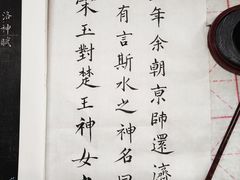 年余朝京師還濟
有言斯水之神名曰
宋玉對楚王神女
洛神賦